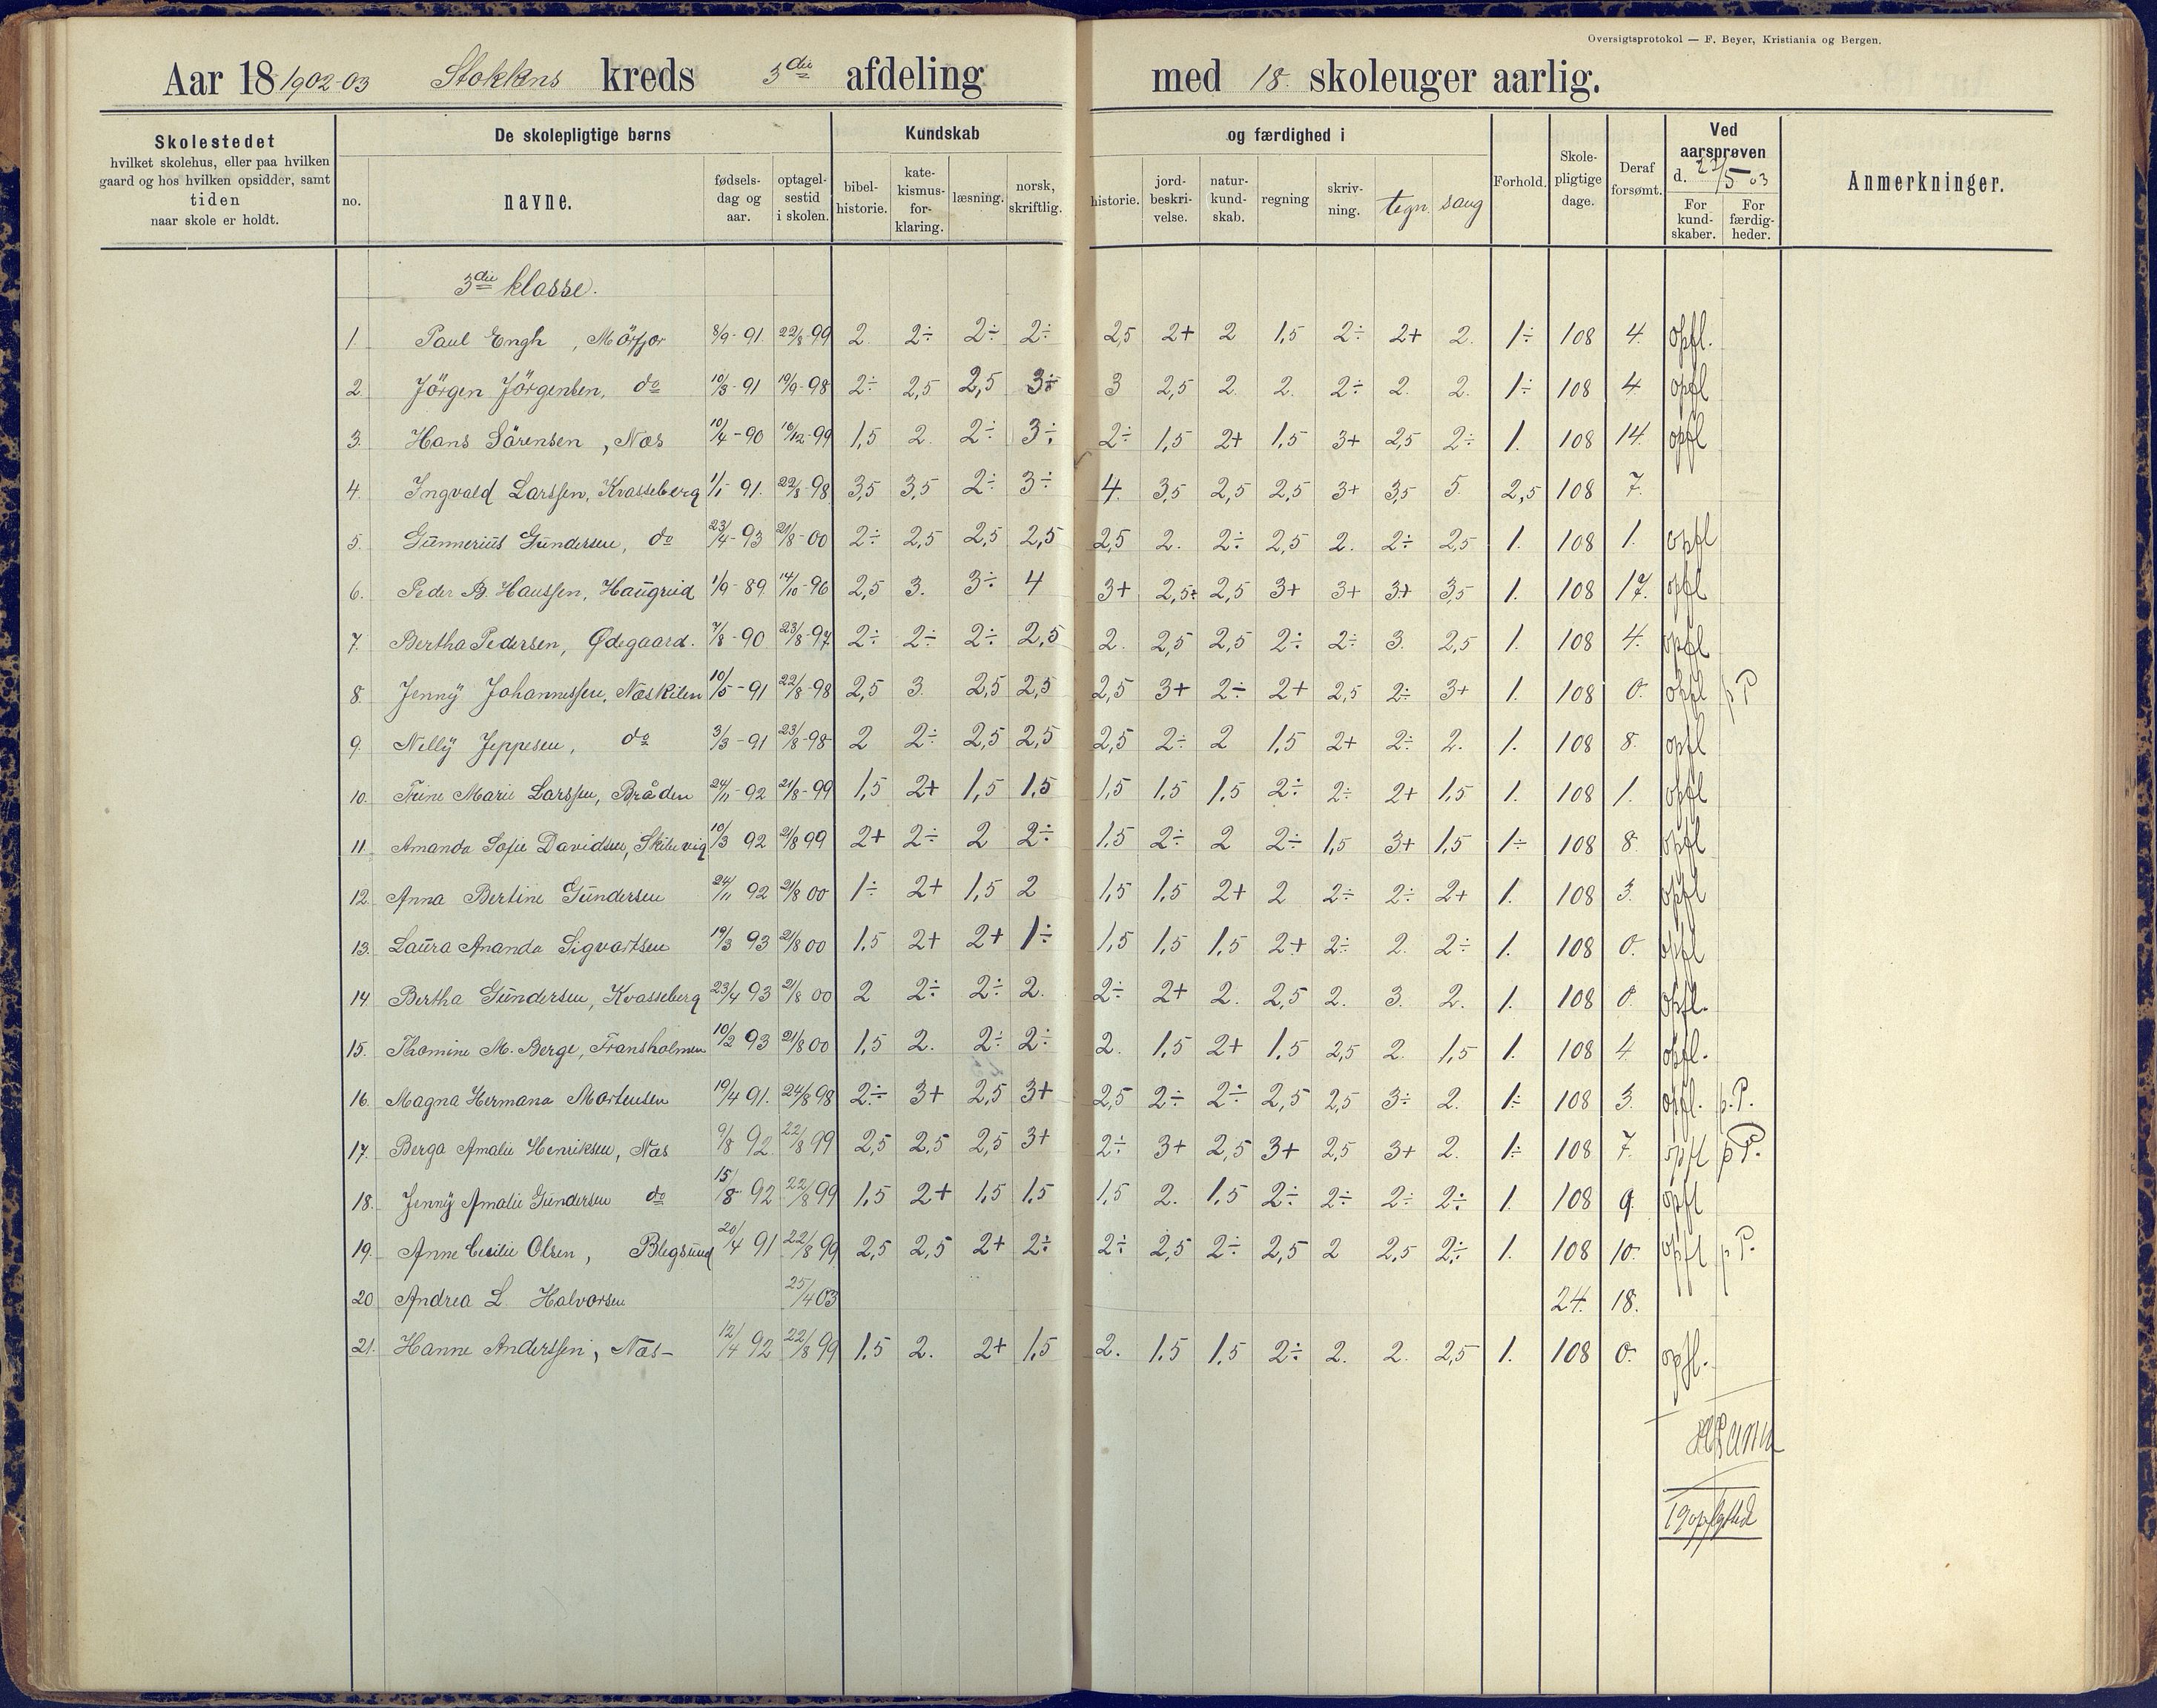 Oversigtsprotokol — F. Beyer, Kristiania og Bergen.
Aar 18 1902-03 Stokkens kreds 3die afdeling med 18 skoleuger aarlig.
Skolestedet hvilket skolehus, eller paa hvilken gaard og hos hvilken opsidder, samt tiden naar skole er holdt.
De skolepligtige børns
no. navne. fødsels-dag og aar. optagel-sestid i skolen.
Kundskab og færdighed i
bibel-historie. kate-kismus-for-klaring. læsning. norsk, skriftlig. historie. jord-beskri-velse. natur-kund-skab. regning skriv-ning. tegn. sang
Forhold. Skole-pligtige dage. Deraf forsømt.
Ved aarsprøven d. 22/5 03
For kund-skaber. For færdig-heder.
Anmerkninger.
3die klasse.
1. Paul Engh, Mörfjor 8/9-91 22/8-99 2. 2÷ 2÷ 2÷ 2,5 2+ 2 1,5 2÷ 2+ 2. 1÷ 108 4. opfl.
2. Jörgen Jörgensen, do 10/3-91 19/9-98 2÷ 2,5 2,5 3÷ 3 2,5 2. 2. 2÷ 2. 2. 1÷ 108 4 opfl
3. Hans Sörensen, Næs 10/4-90 16/12-99 1,5 2. 2÷ 3÷ 2÷ 1,5 2+ 1,5 3+ 2,5 2÷ 1. 108 14. opfl
4. Ingvald Larssen, Kvasseberg 1/1 91. 22/8-98 3,5 3,5 2÷ 3÷ 4 3,5 2,5 2,5 3+ 3,5 5. 2,5 108 7.
5. Gunnerius Gundersen, do 23/4-93 21/8-00 2÷ 2,5 2,5 2,5 2,5 2. 2÷ 2,5 2. 2÷ 2,5 1. 108 1. opfl
6. Peder B. Hanssen, Haugrud 1/9-89. 14/10-96 2,5 3. 3÷ 4 3+ 2,5÷ 2,5 3+ 3+ 3+ 3,5 1. 108 17. opfl
7. Bertha Pedersen, Ødegaard. 7/8-90 23/8-97 2÷ 2÷ 2÷ 2,5 2. 2,5 2,5 2÷ 2÷ 3. 2,5 1. 108 4. opfl
8. Jenny Johannessen, Næskilen 10/5-91 22/8-98 2,5 3. 2,5 2,5 2,5 3+ 2÷ 2+ 2,5 2÷ 3+ 1. 108 0. opfl p P
9. Nelly Jeppesen, do 3/3-91 23/8-98 2 2÷ 2,5 2,5 2,5 2÷ 2 1,5 2+ 2÷ 2. 1. 108 8. opfl
10. Trine Marie Larssen, Bråden 24/11-92 21/8-99 1,5 2+ 1,5 1,5 1,5 1,5 1,5 2÷ 2÷ 2+ 1,5 1. 108 1. opfl
11. Amanda Sofie Davidsen, Skilevig 10/3 92 21/8 99 2+ 2÷ 2 2÷ 1,5 2÷ 2 2÷ 1,5 3+ 1,5 1÷ 108 8. opfl
12. Anna Bertine Gundersen 24/11 92 21/8 00 1÷ 2+ 1,5 2 1,5 1,5 2+ 2 2÷ 2÷ 2+ 1. 108 3. opfl
13. Laura Ananda Sigvartsen 19/3 93 21/8 00 1,5 2+ 2+ 1÷ 1,5 1,5 1,5 2+ 2÷ 2. 2÷ 1. 108 0. opfl
14. Bertha Gundersen, Kvasseberg 23/4 93 21/8 00 2 2÷ 2÷ 2. 2÷ 2+ 2. 2,5 2. 3. 2. 1. 108 0. opfl.
15. Thomine M. Berge, Fransholmen 10/2 93 21/8 00 1,5 2. 2÷ 2÷ 2. 1,5 2+ 1,5 2,5 2. 1,5 1. 108 4 opfl.
16. Magna Hermana Mortensen 19/4 91. 24/8 98 2÷ 3+ 2,5 3+ 2,5 2÷ 2÷ 2,5 2,5 3÷ 2. 1÷ 108 3. opfl. p.P.
17. Berga Amalie Henriksen, Næs 9/8 92 22/8 99 2,5 2,5 2,5 3+ 2÷ 3+ 2,5 3+ 2,5 3+ 2. 1÷ 108 7. opfl p P.
18. Jenny Amalie Gundersen do 15/8 92 22/8 99 1,5 2+ 1,5 1,5 1,5 2. 1,5 2÷ 2÷ 2÷ 2÷ 1. 108 9. opfl
19. Anne Cecilie Olsen, Blegsund 20/4 91 22/8 99 2,5 2,5 2+ 2÷ 2÷ 2,5 2÷ 2,5 2 2,5 2÷ 1. 108 10. opfl p P.
20 Andrea L. Halvorsen 25/4 03 24. 18.
21. Hanne Anderssen, Næs- 12/4 92 22/8 99 1,5 2. 2+ 1,5 2. 1,5 1,5 2÷ 2. 2. 2,5 1. 108 0. opfl.
19 opflytted